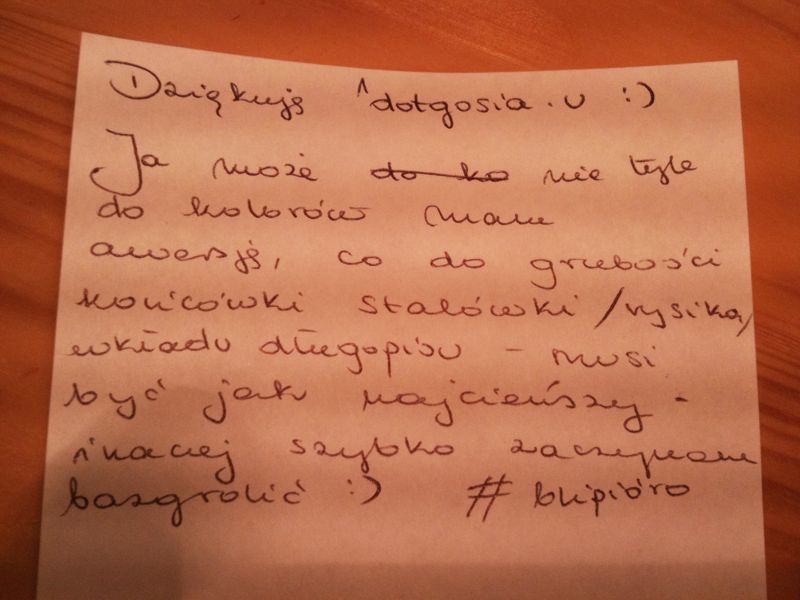 Dziękuję ^dotgosia.u :)
Ja może do ko nie tyle
do kolorów mam
awersję, co do grubości
końcówki stalówki/rysika/
wkładu długopisu - musi
być jak najcieńszy -
inaczej szybko zaczynam
bazgrolić :) #blipióro